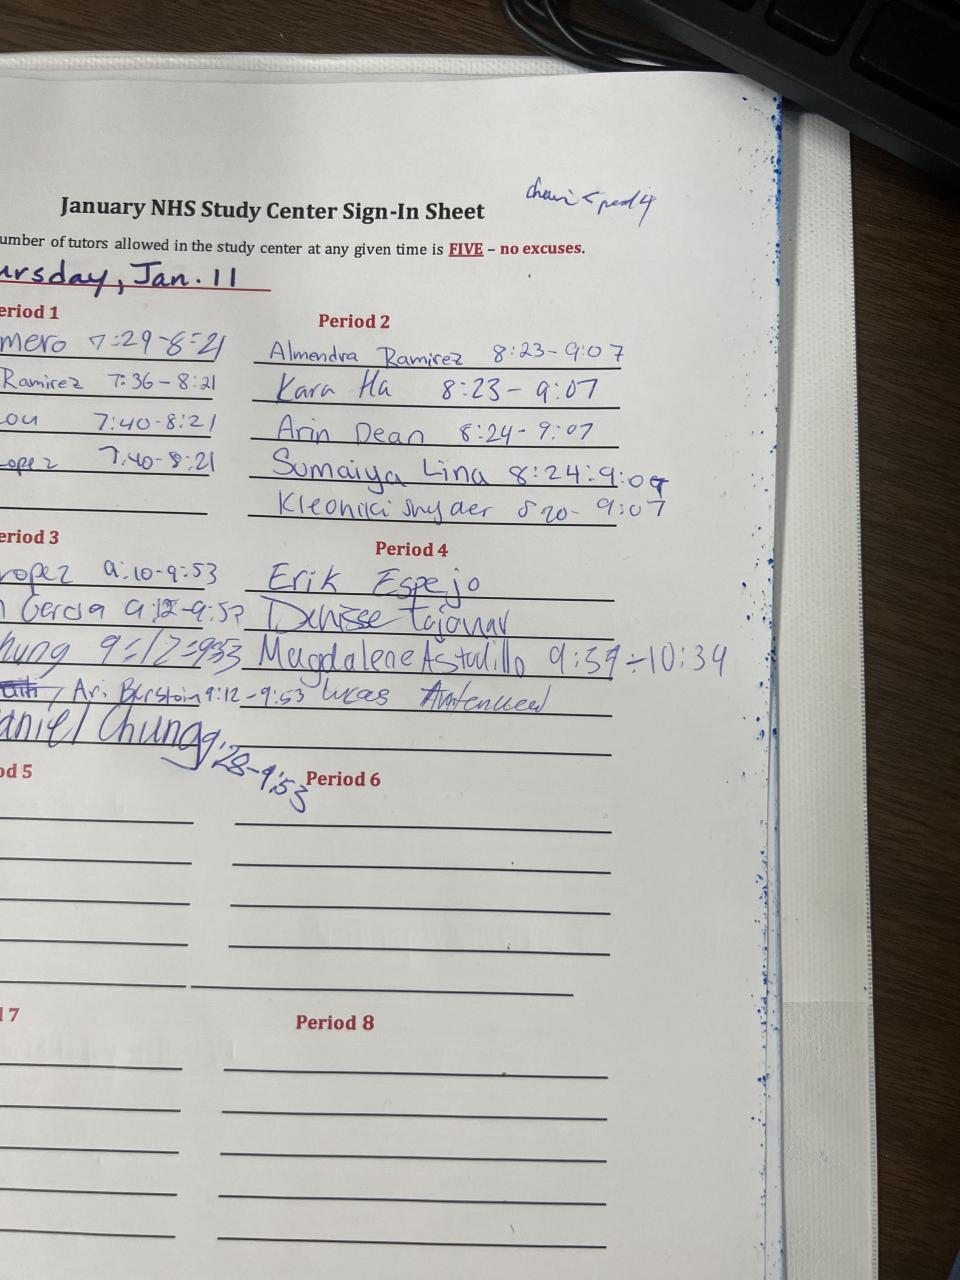 January NHS Study Center Sign-In Sheet
umber of tutors allowed in the study center at any given time is FIVE – no excuses.
ursday, Jan. 11
eriod 1
mero 7:29-8:21
Ramirez 7:36-8:21
ou 7:40-8:21
opez 7:40-8:21
Period 2
Almendra Ramirez 8:23-9:07
Kara Ha 8:23-9:07
Arin Dean 8:24-9:07
Sumaiya Lina 8:24:9:07
Kleoniki Snyder 8:20-9:07
eriod 3
opez 9:10-9:53
Garcia 9:12-9:53
hung 9:12-9:53
Ari Burstein 9:12-9:53
aniel Chung 9:28-9:53
Period 4
Erik Espejo
Denisse
Magdalene Astudillo 9:59-10:34
Lucas
od 5
Period 6
l 7
Period 8